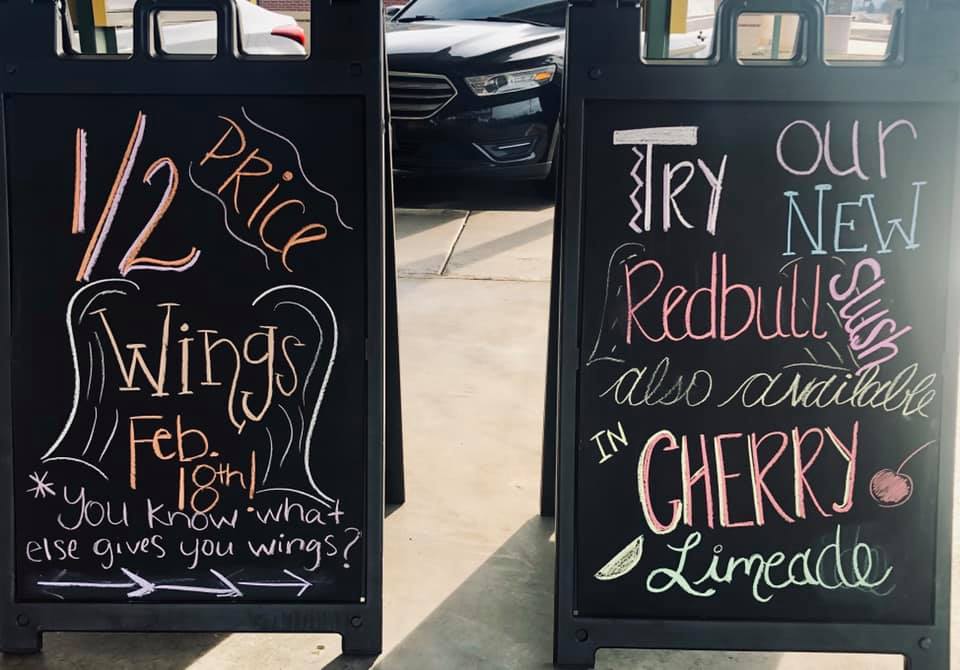 1/2 PRice
Wings
Feb.
18th!
*You know what
else gives you wings?
TRY our
NEW
Redbull Slush
also available
IN CHERRY
Limeade